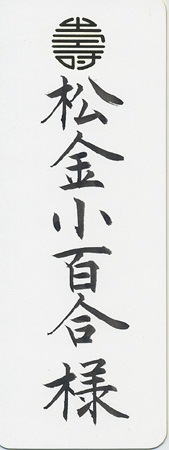 壽
松金小百合様